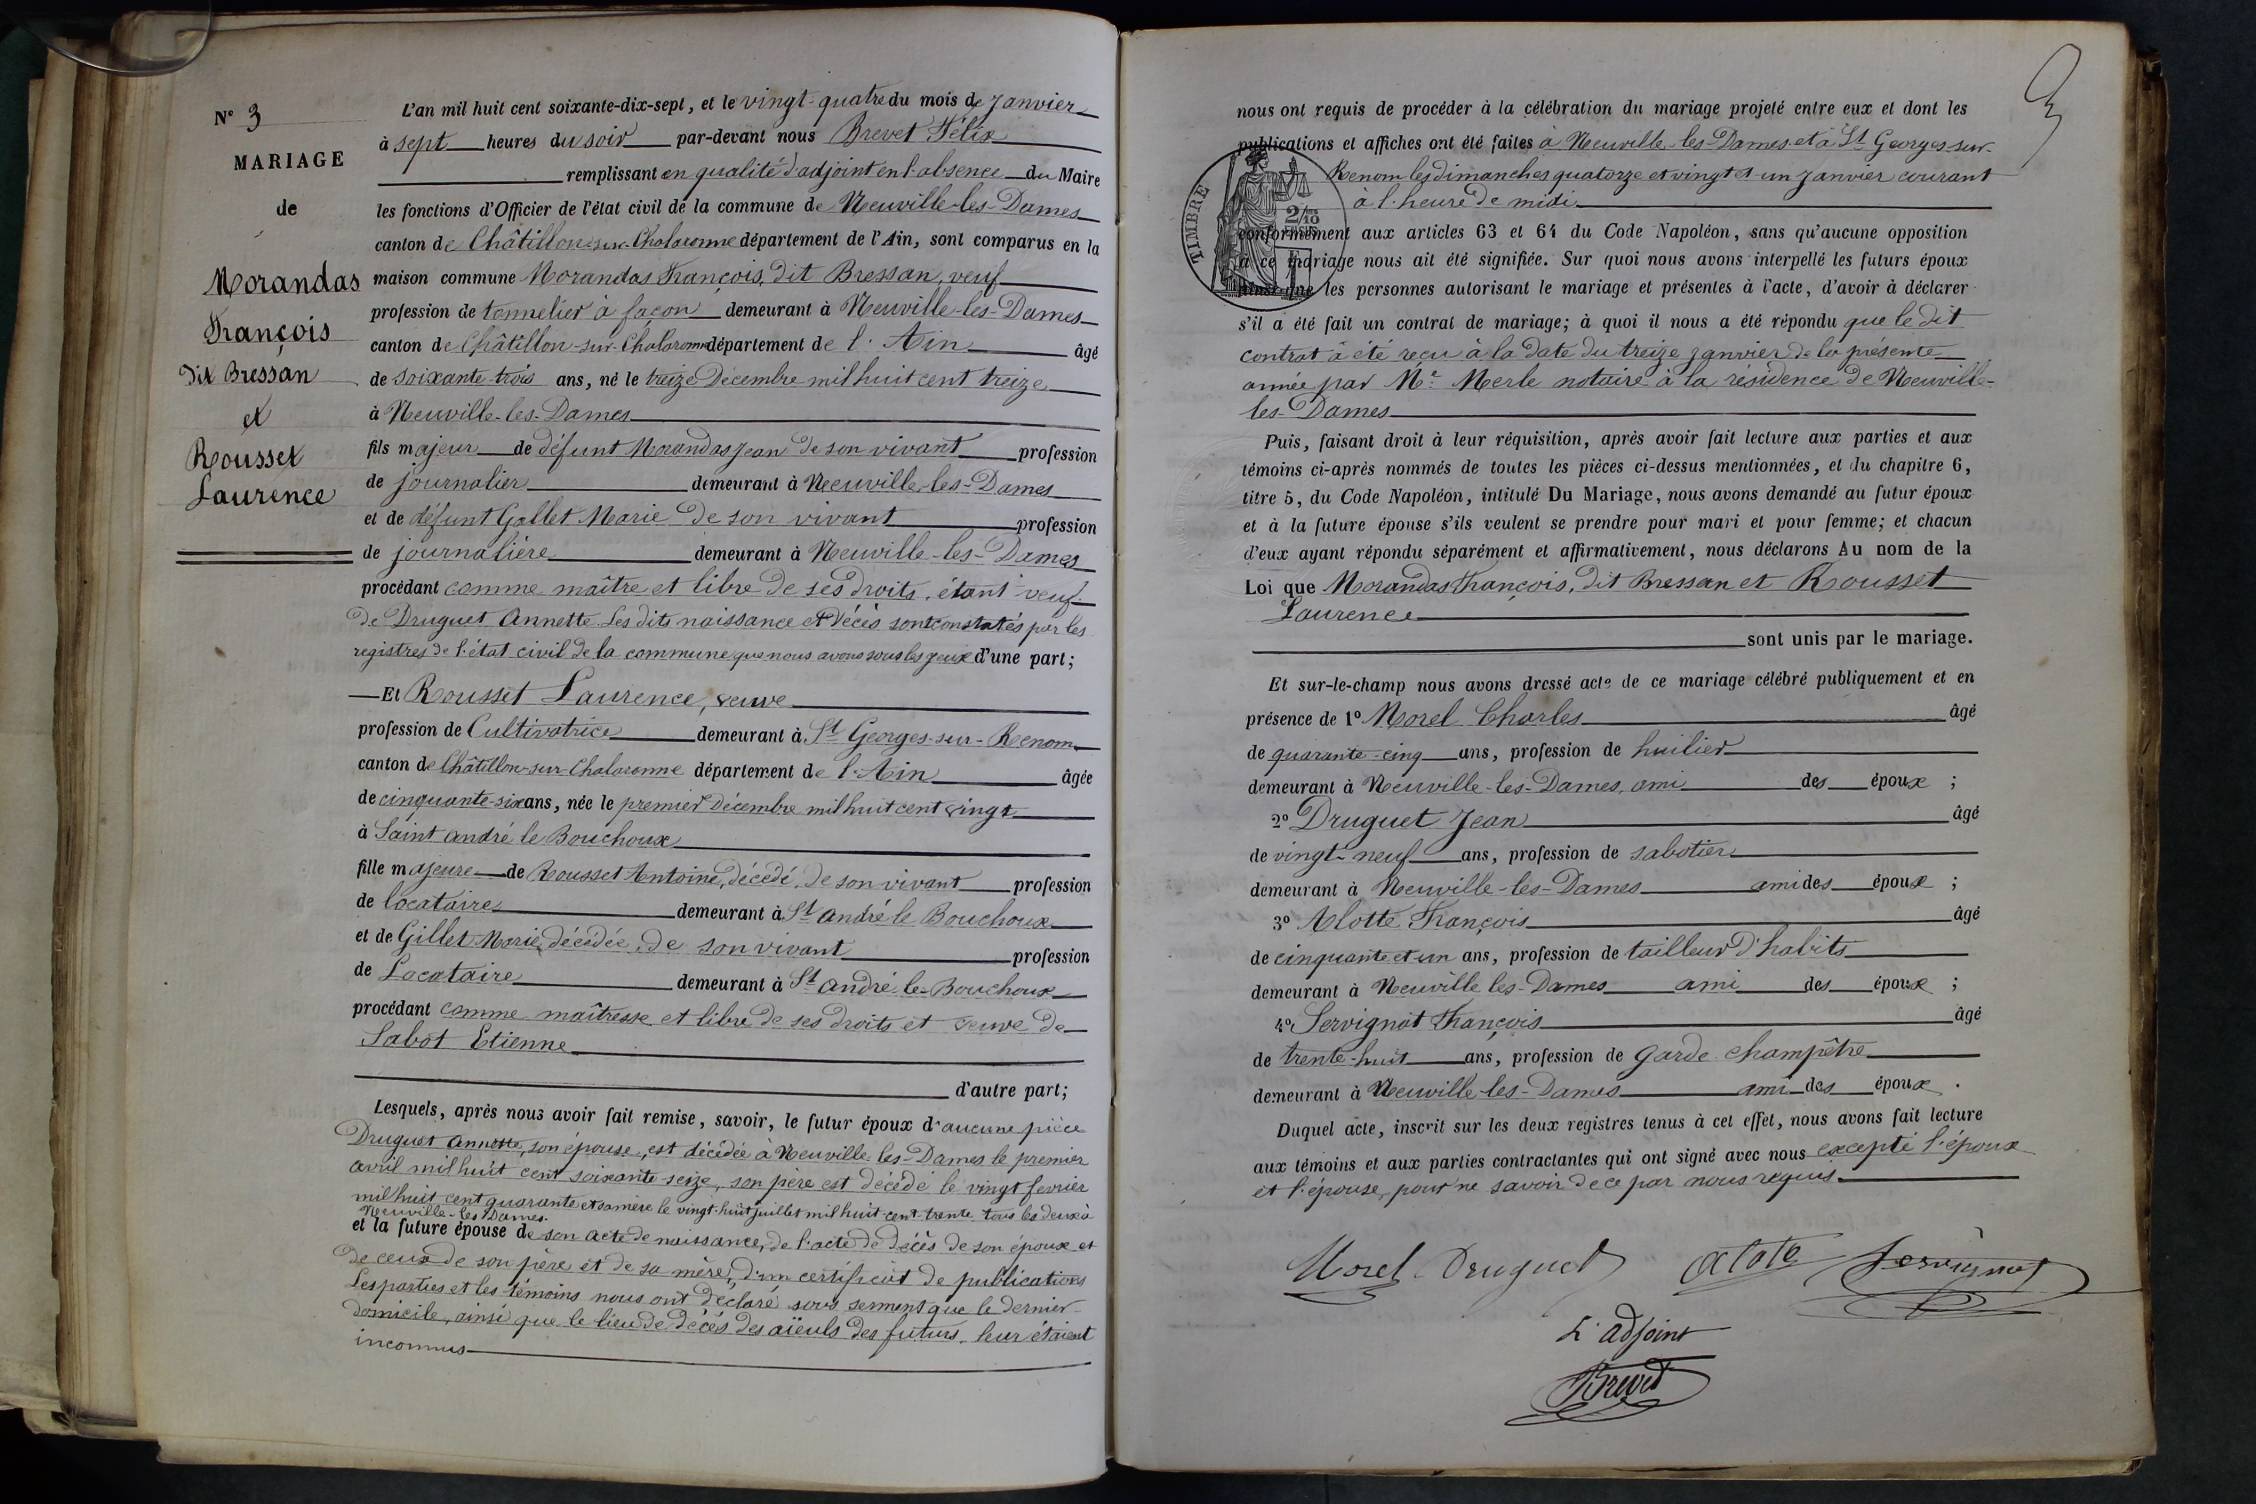 N° 3
MARIAGE
de
Morandas
François
dit Bressan
et
Rousset
Laurence
L'an mil huit cent soixante-dix-sept, et le vingt-quatre du mois de Janvier
à sept heures du soir par-devant nous Brevet Félix
remplissant en qualité d'adjoint en l'absence du Maire
les fonctions d'Officier de l'état civil de la commune de Neuville-les-Dames
canton de Châtillon-sur-Chalaronne département de l'Ain, sont comparus en la
maison commune Morandas François, dit Bressan, veuf
profession de tonnelier à façon demeurant à Neuville-les-Dames
canton de Châtillon-sur-Chalaronne département de l'Ain âgé
de soixante-trois ans, né le treize Décembre mil huit cent treize
à Neuville-les-Dames
fils majeur de défunt Morandas Jean de son vivant profession
de journalier demeurant à Neuville-les-Dames
et de défunt Gallet Marie de son vivant profession
de journalière demeurant à Neuville-les-Dames
procédant comme maître et libre de ses droits, étant veuf
de Druguet Annette. Les dits naissance et décès sont constatés par les
registres de l'état civil de la commune que nous avons sous les yeux d'une part;
Et Rousset Laurence, veuve
profession de Cultivatrice demeurant à St Georges-sur-Renom
canton de Châtillon-sur-Chalaronne département de l'Ain âgée
de cinquante-six ans, née le premier Décembre mil huit cent vingt
à Saint André le Bouchoux
fille majeure de Rousset Antoine, décédé, de son vivant profession
de locataire demeurant à St André le Bouchoux
et de Gillet Marie, décédée, de son vivant profession
de Locataire demeurant à St André-le-Bouchoux
procédant comme maîtresse et libre de ses droits et veuve de
Sabot Etienne
d'autre part;
Lesquels, après nous avoir fait remise, savoir, le futur époux d'aucune pièce
Druguet Annette, son épouse, est décédée à Neuville-les-Dames le premier
avril mil huit cent soixante-seize, son père est décédé le vingt février
mil huit cent quarante et sa mère le vingt-huit juillet mil huit-cent-trente tous les deux à
Neuville-les Dames.
et la future épouse de son acte de naissance, de l'acte de décès de son époux et
de ceux de son père et de sa mère, d'un certificat de publications
Les parties et les témoins nous ont déclaré sous serment que le dernier
domicile, ainsi que le lieu de décès des aïeuls des futurs, leur étaient
inconnus
nous ont requis de procéder à la célébration du mariage projeté entre eux et dont les
publications et affiches ont été faites à Neuville-les-Dames et à St Georges-sur-
Renom les dimanches quatorze et vingt et un Janvier courant
à l'heure de midi
TIMBRE
2/10
conformément aux articles 63 et 64 du Code Napoléon, sans qu'aucune opposition
à ce mariage nous ait été signifiée. Sur quoi nous avons interpellé les futurs époux
ainsi que les personnes autorisant le mariage et présentes à l'acte, d'avoir à déclarer
s'il a été fait un contrat de mariage; à quoi il nous a été répondu que le dit
contrat a été reçu à la date du treize janvier de la présente
année par Me Merle notaire à la résidence de Neuville-
les-Dames
Puis, faisant droit à leur réquisition, après avoir fait lecture aux parties et aux
témoins ci-après nommés de toutes les pièces ci-dessus mentionnées, et du chapitre 6,
titre 5, du Code Napoléon, intitulé Du Mariage, nous avons demandé au futur époux
et à la future épouse s'ils veulent se prendre pour mari et pour femme; et chacun
d'eux ayant répondu séparément et affirmativement, nous déclarons Au nom de la
Loi que Morandas François, dit Bressan et Rousset
Laurence
sont unis par le mariage.
Et sur-le-champ nous avons dressé acte de ce mariage célébré publiquement et en
présence de 1° Morel Charles âgé
de quarante-cinq ans, profession de huilier
demeurant à Neuville-les-Dames, ami des époux ;
2° Druguet Jean âgé
de vingt-neuf ans, profession de sabotier
demeurant à Neuville-les-Dames ami des époux ;
3° Alotte François âgé
de cinquante et un ans, profession de tailleur d'habits
demeurant à Neuville les-Dames ami des époux ;
4° Servignat François âgé
de trente-huit ans, profession de Garde champêtre
demeurant à Neuville-les-Dames ami des époux.
Duquel acte, inscrit sur les deux registres tenus à cet effet, nous avons fait lecture
aux témoins et aux parties contractantes qui ont signé avec nous excepté l'époux
et l'épouse, pour ne savoir de ce par nous requis.
Morel Druguet Alote Servignat
L'adjoint
Brevet